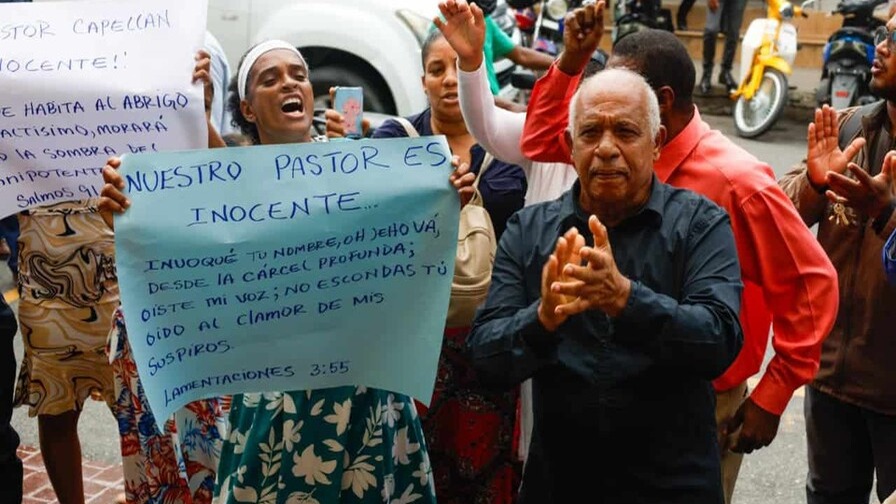 STOR CAPELLAN
NOCENTE!
E HABITA AL ABRIGO
ALTÍSIMO, MORARÁ
O LA SOMBRA DEL
NIPOTENT
SALMOS 91
NUESTRO PASTOR ES
INOCENTE...
INVOQUÉ TU NOMBRE, OH JEHOVÁ,
DESDE LA CÁRCEL PROFUNDA;
OISTE MI VOZ; NO ESCONDAS TÚ
OIDO AL CLAMOR DE MIS
SUSPIROS.
LAMENTACIONES 3:55